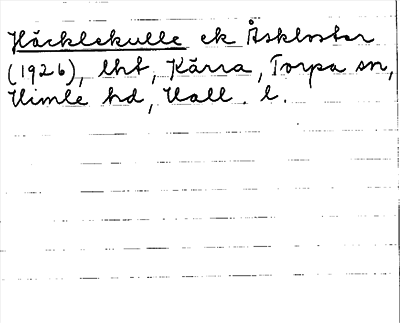 Häcklekulle ek Åskloster
(1926), lht, Kärra, Torpa sn,
Himle hd, Hall. l.